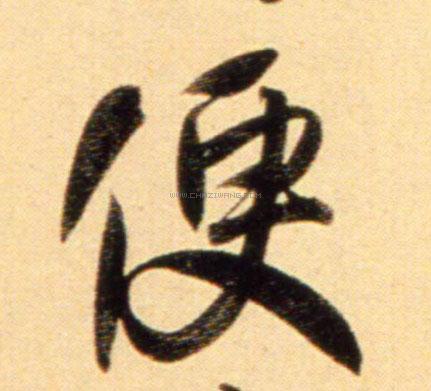 便
WWW.CHAZIWANG.COM